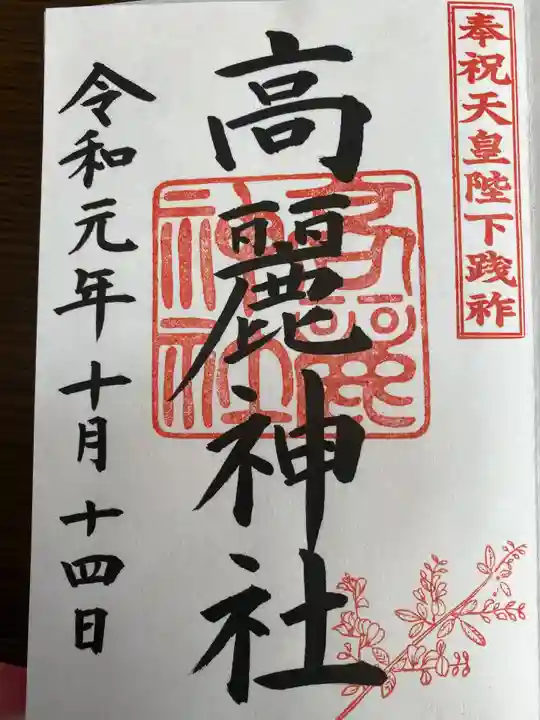 奉祝天皇陛下践祚
高麗神社
高麗神社
令和元年十月十四日